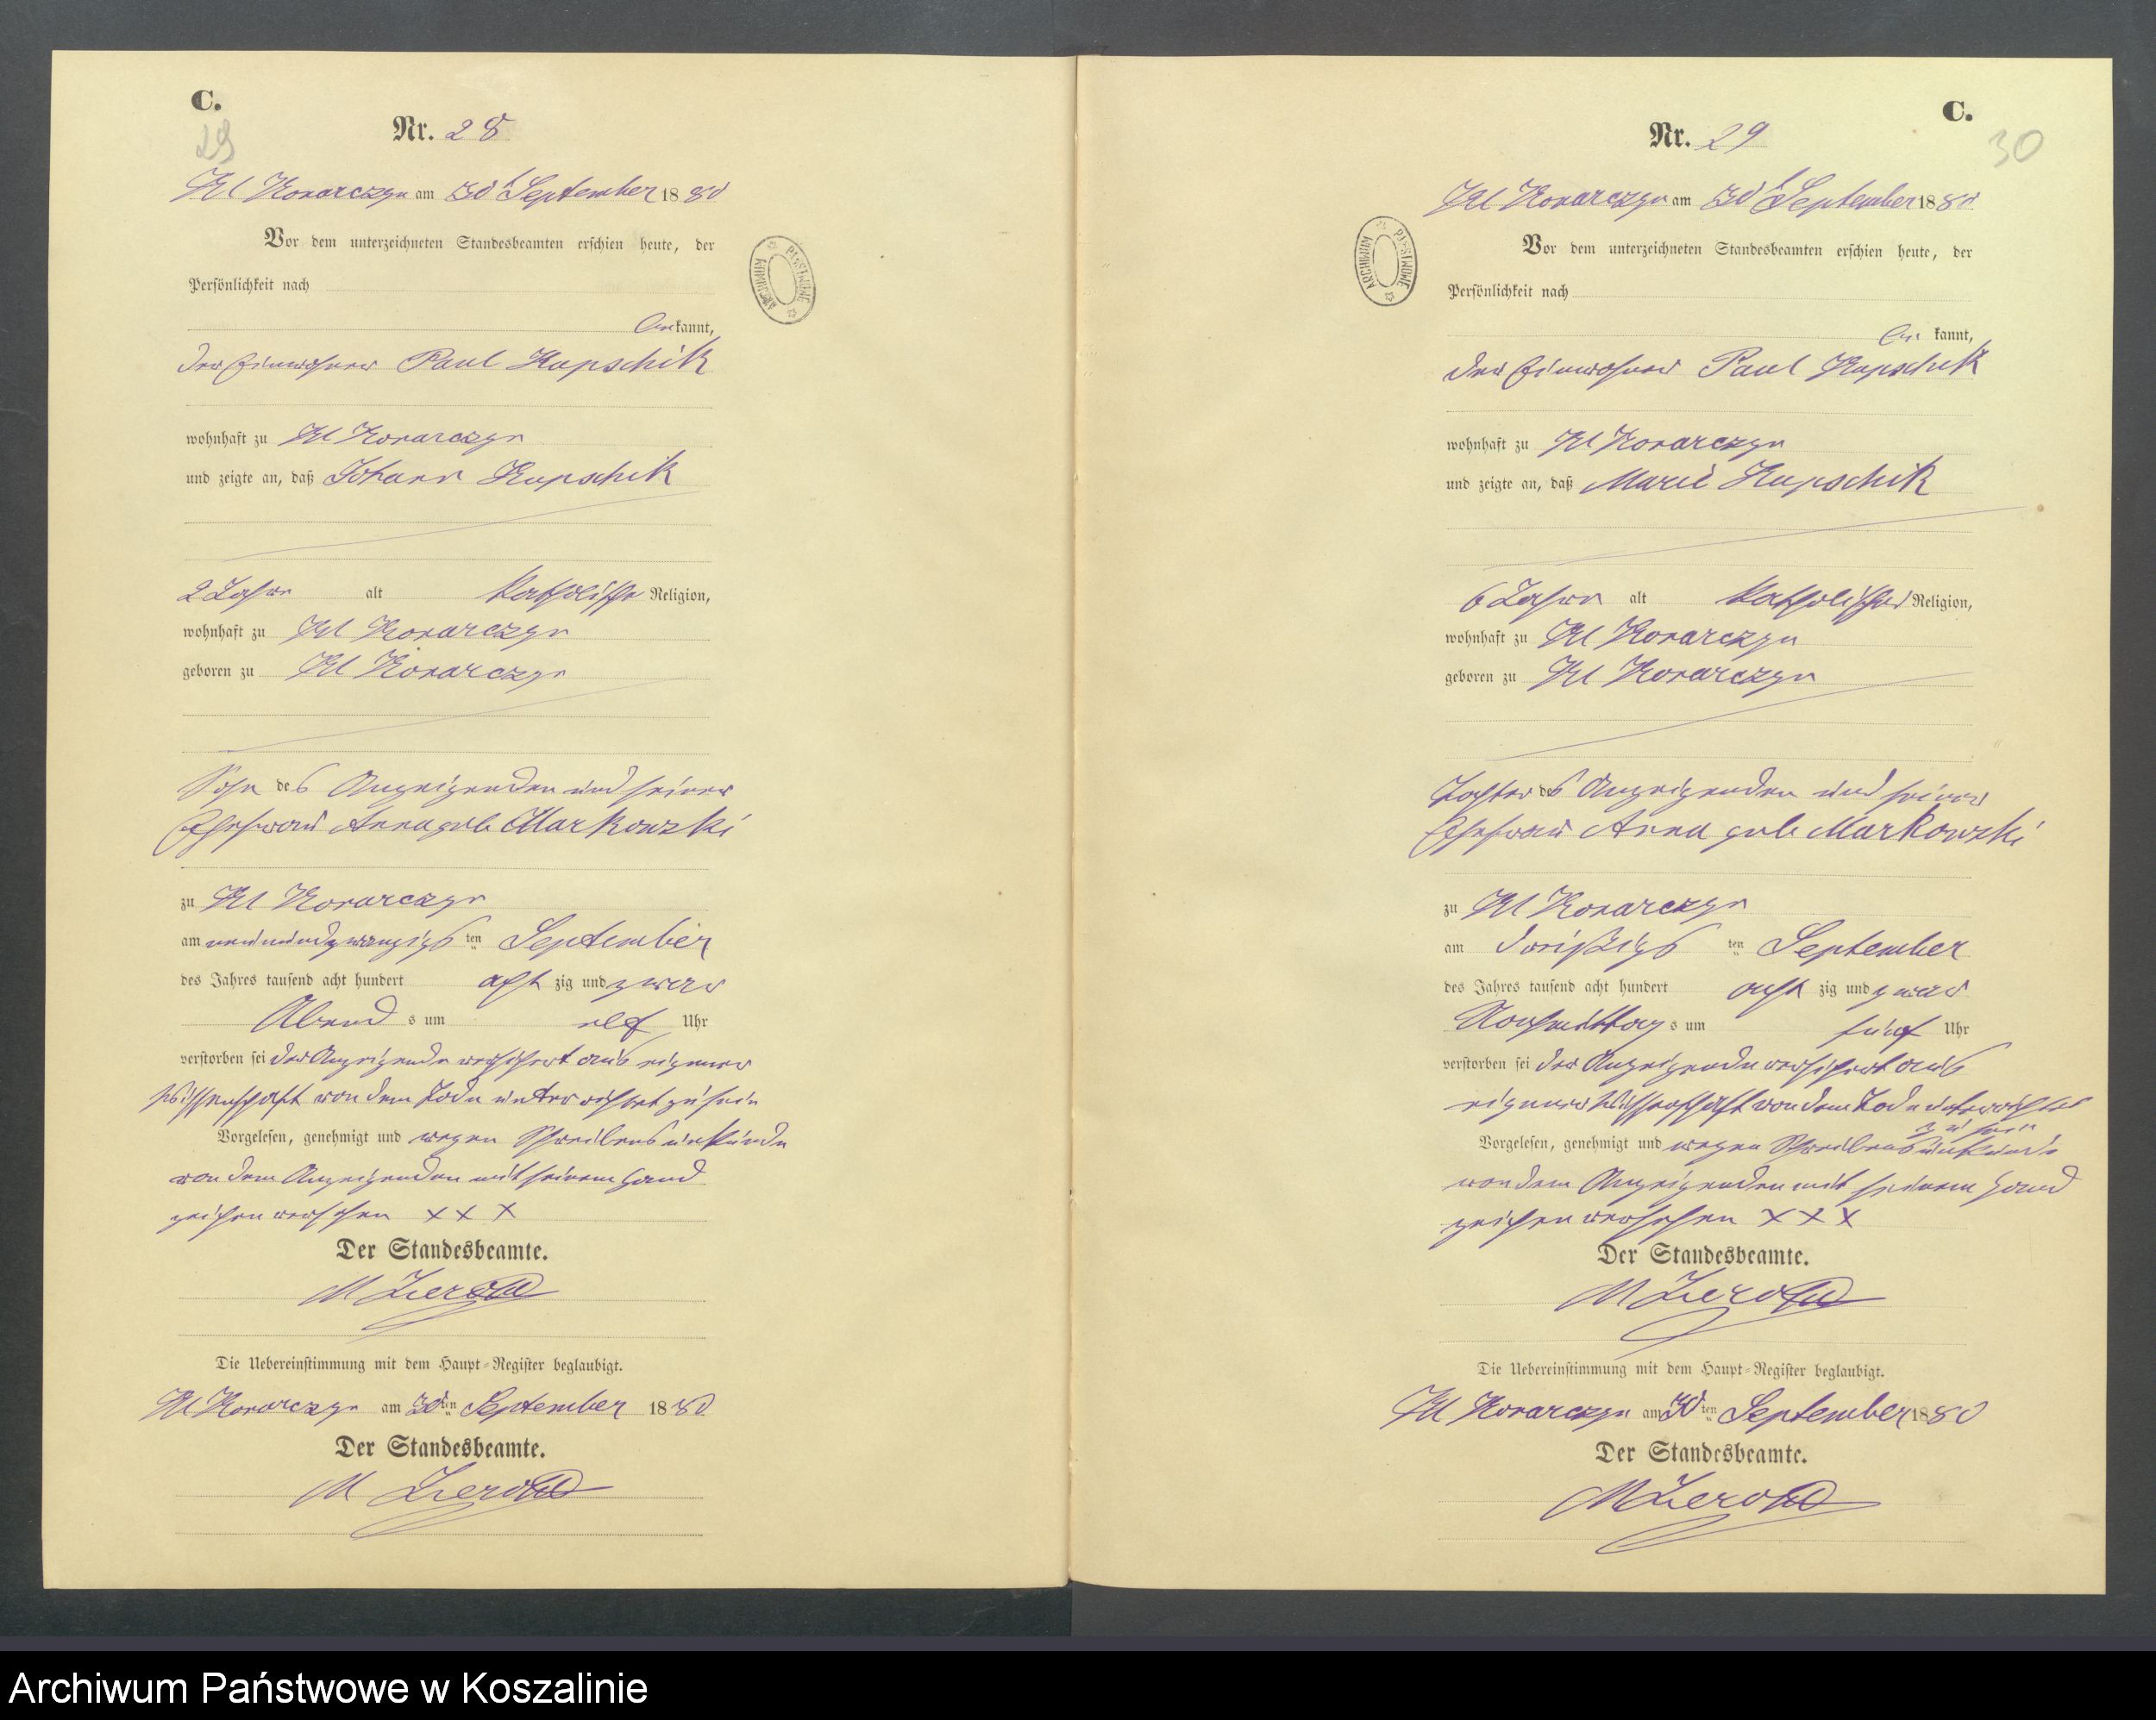 C.
29
Nr. 28
Kl Konarczyn am 30t September 1880
Vor dem unterzeichneten Standesbeamten erschien heute, der
Persönlichkeit nach
kannt,
der Einwohner Paul Kupschik
wohnhaft zu Kl Konarczyn
und zeigte an, daß Johann Kupschik
2 Jahre alt Katholische Religion,
wohnhaft zu Kl Konarczyn
geboren zu Kl Konarczyn
Sohn des Anzeigenden und seiner
Ehefrau Anna geb. Markowski
zu Kl Konarczyn
am neunundzwanzigs ten September
des Jahres tausend acht hundert acht zig und zwar
Abend s um elf Uhr
verstorben sei der Anzeigende versichert aus eigener
Wissenschaft von dem Tode unterrichtet zu sein
Vorgelesen, genehmigt und wegen Schreibensunkunde
von dem Anzeigenden mit seinem Hand
zeichen versehen X X X
Der Standesbeamte.
M
Die Uebereinstimmung mit dem Haupt-Register beglaubigt.
Kl Konarczyn am 30ten September 1880
Der Standesbeamte.
M
C.
30
Nr. 29
Kl Konarczyn am 30t September 1880
Vor dem unterzeichneten Standesbeamten erschien heute, der
Persönlichkeit nach
kannt,
der Einwohner Paul Kupschik
wohnhaft zu Kl Konarczyn
und zeigte an, daß Marie Kupschik
6 Jahre alt Katholischer Religion,
wohnhaft zu Kl Konarczyn
geboren zu Kl Konarczyn
Tochter des Anzeigenden und seiner
Ehefrau Anna geb. Markowski
zu Kl Konarczyn
am dreißigs ten September
des Jahres tausend acht hundert acht zig und zwar
Nachmittag s um fünf Uhr
verstorben sei der Anzeigende versichert aus
eigener Wissenschaft von dem Tode unterrichtet
zu sein
Vorgelesen, genehmigt und wegen Schreibensunkunde
von dem Anzeigenden mit seinem Hand
zeichen versehen X X X
Der Standesbeamte.
M
Die Uebereinstimmung mit dem Haupt-Register beglaubigt.
Kl Konarczyn am 30ten September 1880
Der Standesbeamte.
M
ARCHIWUM PAŃSTWOWE
ARCHIWUM PAŃSTWOWE
Archiwum Państwowe w Koszalinie